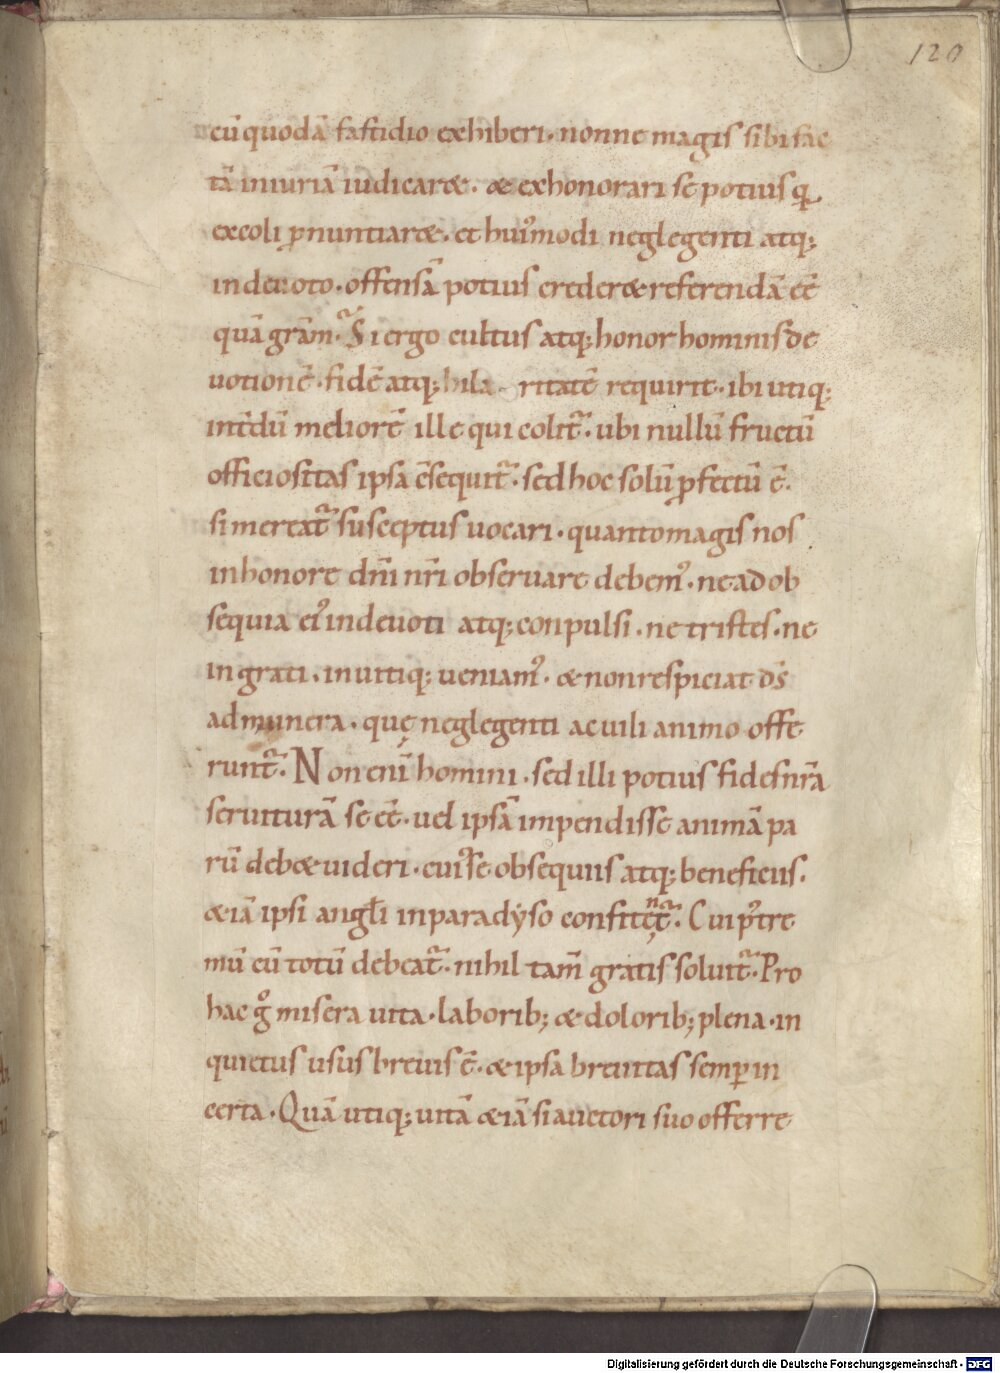 120
cū quodā fastidio exhiberi. nonne magis sibi fac
tā iniuriā iudicaret. et exhonorari se potius quā
excoli ꝓnuntiaret. et huiꝰmodi neglegenti atq;
indeuoto. offensā potius crederet referendā eē
quā grām. Si ergo cultus atq; honor hominis de
uotionē. fidē atq; hila ritatē requirit. ibi utiq;
intdū meliorē ille qui colit̃. ubi nullū fructū
officiositas ipsa cōsequit̃. sed hoc solū ꝑfectū ē.
si mereat̃ susceptus uocari. quanto magis nos
in honore dn̄i nr̄i obseruare debemꝰ. ne ad ob
sequia eiꝰ indeuoti atq; conpulsi. ne tristes. ne
ingrati. inuitiq; ueniamꝰ. et non respiciat d̄s
ad munera. quę neglegenti ac uili animo offe
runt̃. Non enī homini. sed illi potius fides nr̄a
seruiturā se eē. uel ipsā impendisse animā pa
rū debet uideri. cui se obsequiis atq; beneficiis.
etiā ipsi angłi in paradẏso confitent̃. Cui pꝰtre
mū cū totū debeat̃. nihil tam̄ gratis soluit̃. Pro
hac gͦ misera uita. laborib; et dolorib; plena. in
quietus usus breuis ē. et ipsa breuitas semꝑ in
certa. Quā utiq; uitā etiā si auctori suo offerre
Digitalisierung gefördert durch die Deutsche Forschungsgemeinschaft - DFG